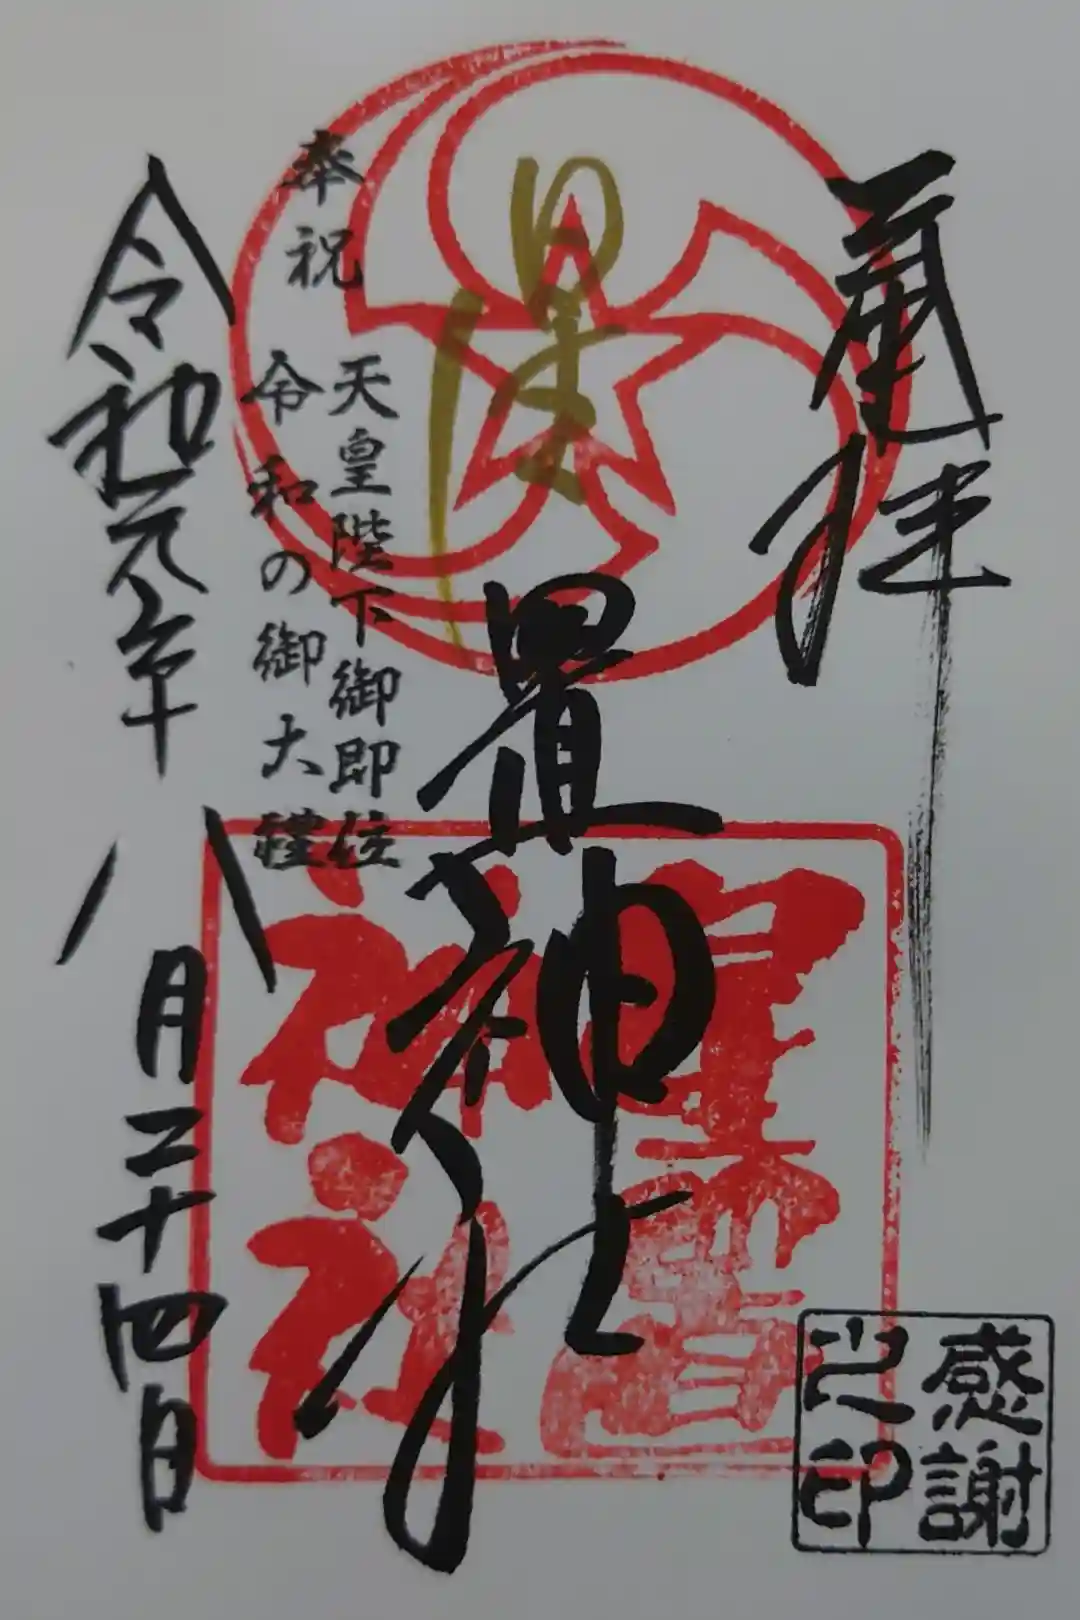 星置神社
奉祝
天皇陛下御即位
令和の御大禮
令和元年八月二十四日
星置
神社
感謝
之印